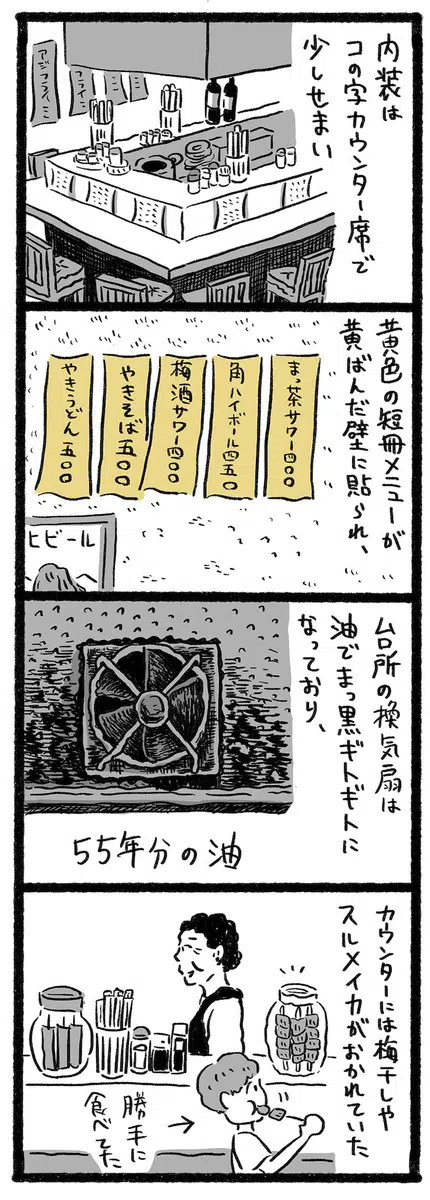 内装は
コの字カウンター席で
少しせまい
アジフライ
フライ
黄色の短冊メニューが
黄ばんだ壁に貼られ、
まっ茶サワー四〇〇
角ハイボール四五〇
梅酒サワー四〇〇
やきそば五〇〇
やきうどん五〇〇
ヒビール
台所の換気扇は
油でまっ黒ギトギトに
なっており、
55年分の油
カウンターには梅干しや
スルメイカがおかれていた
勝手に
食べてた